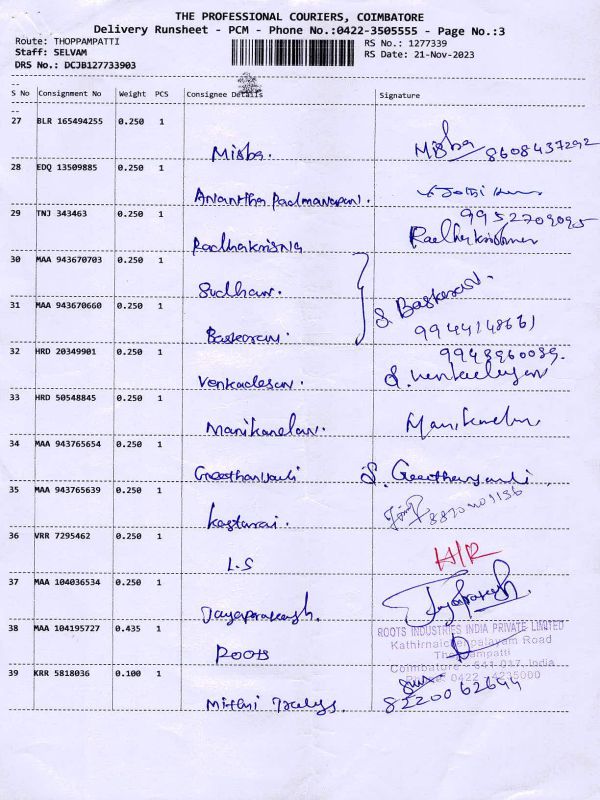 THE PROFESSIONAL COURIERS, COIMBATORE
Delivery Runsheet - PCM - Phone No.:0422-3505555 - Page No.:3
Route: THOPPAMPATTI RS No.: 1277339
Staff: SELVAM RS Date: 21-Nov-2023
DRS No.: DCJB127733903
S No Consignment No Weight PCS Consignee Details Signature
27 BLR 165494255 0.250 1
Misba. Misba 8608437292
28 EDQ 13509885 0.250 1
Anantha Padmanapan.
29 TNJ 343463 0.250 1 9952709095
Radhakrisna Radhakrishnan
30 MAA 943670703 0.250 1
Sudhan. S. Baskaran.
31 MAA 943670660 0.250 1 9944148661
Baskaran.
32 HRD 20349901 0.250 1 9948960089.
Venkadesan. S. Venkadesan
33 HRD 50548845 0.250 1
Manikandan. Manikandan
34 MAA 943765654 0.250 1
Geethanjali S. Geethanjali
35 MAA 943765639 0.250 1
36 VRR 7295462 0.250 1
L.S H/R
37 MAA 104036534 0.250 1
Jayaprakash. Jayaprakash
38 MAA 104195727 0.435 1 ROOTS INDUSTRIES INDIA PRIVATE LIMITED
ROOTS Road
Thoppampatti
Coimbatore - 641 017, India
39 KRR 5818036 0.100 1 0422 - 4235000
8220062644
Mithni